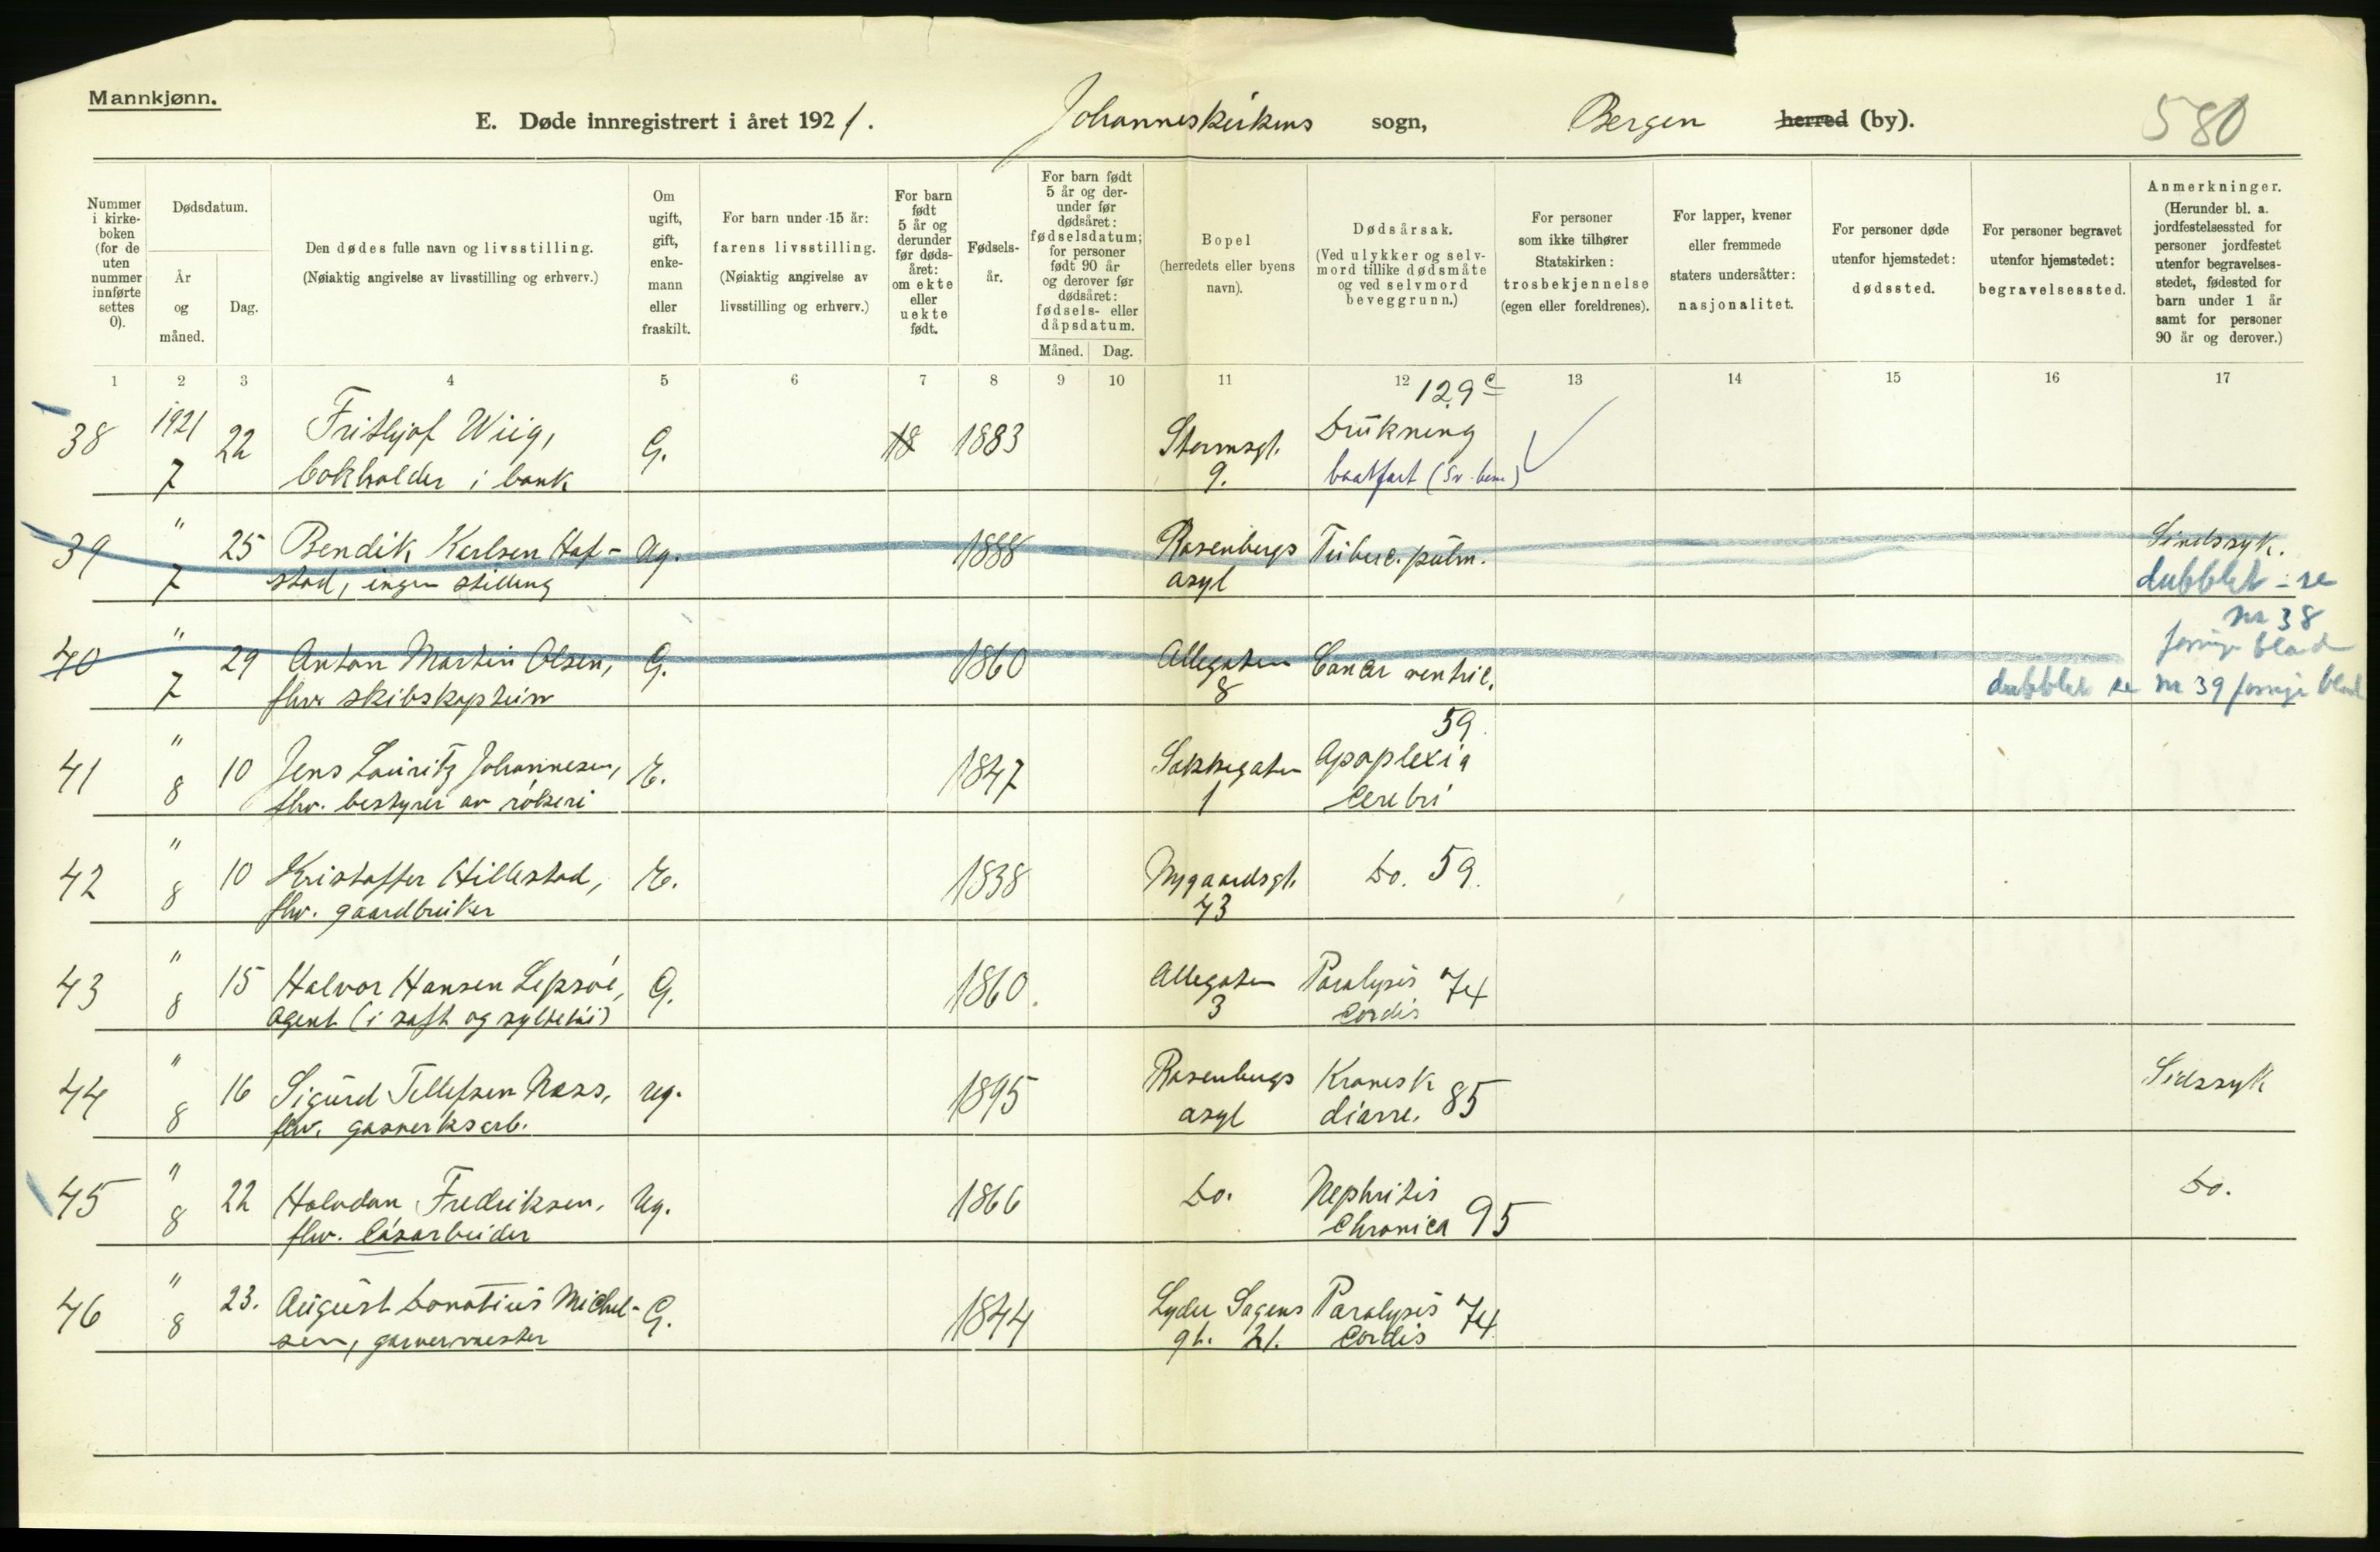 Mannkjønn.
E. Døde innregistrert i året 1921. Johanneskirkens sogn, Bergen herred (by). 580
Nummer i kirke-boken (for de uten nummer innførte settes 0).
Dødsdatum.
År og måned.
Dag.
Den dødes fulle navn og livsstilling.
(Nøiaktig angivelse av livsstilling og erhverv.)
Om ugift, gift, enke-mann eller fraskilt.
For barn under 15 år:
farens livsstilling.
(Nøiaktig angivelse av livsstilling og erhverv.)
For barn født 5 år og derunder før døds-året: om ekte eller uekte født.
Fødsels-år.
For barn født 5 år og der-under før dødsåret: fødselsdatum; for personer født 90 år og derover før dødsåret: fødsels- eller dåpsdatum.
Måned. Dag.
Bopel
(herredets eller byens navn).
Dødsårsak.
(Ved ulykker og selv-mord tillike dødsmåte og ved selvmord beveggrunn.)
For personer som ikke tilhører Statskirken:
trosbekjennelse
(egen eller foreldrenes).
For lapper, kvener eller fremmede staters undersåtter:
nasjonalitet.
For personer døde utenfor hjemstedet:
dødssted.
For personer begravet utenfor hjemstedet:
begravelsessted.
Anmerkninger.
(Herunder bl. a. jordfestelsessted for personer jordfestet utenfor begravelses-stedet, fødested for barn under 1 år samt for personer 90 år og derover.)
1 2 3 4 5 6 7 8 9 10 11 12 13 14 15 16 17
129 c
38 1921 7 22 Frithjof Wiig, G. 18 1883 Stormsgt. Drukning
bokholder i bank 9. baatfart
39 " 7 25 Bendik Karlsen Haf- Ug. 1888 Rosenbergs Tuberc. pulm. Sindssyk.
stad, ingen stilling asyl dubblet - se
nr 38
forrige blad
40 " 7 29 Anton Martin Olsen, G. 1860 Allegaten Cancer ventric.
fhv. skibskaptein 8 dubblet se nr 39 forrige blad
59.
41 " 8 10 Jens Lauritz Johannesen, E. 1847 Sakkegaten Apoplexia
fhv. bestyrer av rökeri 1 Cerebri
42 " 8 10 Kristoffer Hillestad, E. 1838 Nygaardsgt. Do. 59.
fhv. gaardbruker 43
43 " 8 15 Halvor Hansen Lepsöe, G. 1860. Allegaten Paralysis 74
agent (i saft og syltetöi) 3 Cordis
44 " 8 16 Sigurd Tellefsen Næss, ug. 1895 Rosenbergs Kronisk Sidssyk
fhv. gasverksarb. asyl diarre. 85
45 " 8 22 Halvdan Fredriksen, Ug. 1866 Do. Nephritis Do.
fhv. lösarbeider Chronica 95
46 " 8 23. August Donatius Michel- G. 1844 Lyder Sagens Paralysis 74
sen, garvermester gt. 21. Cordis